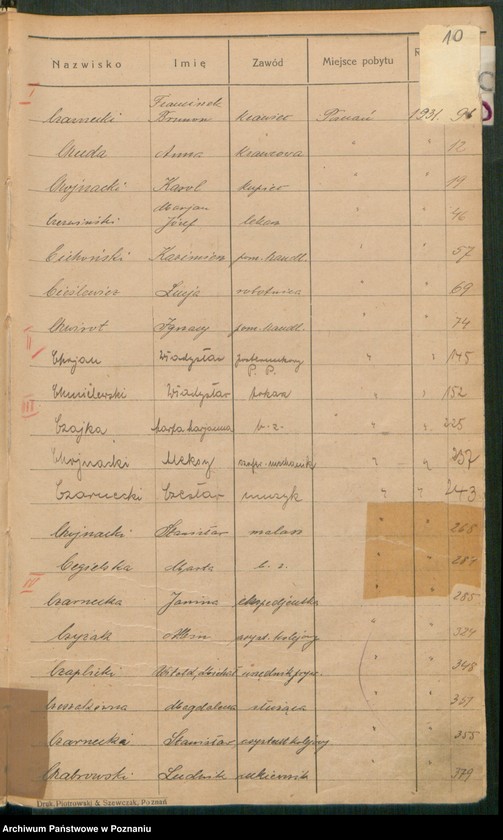 10
Nazwisko Imię Zawód Miejsce pobytu R
I
Franciszek
Czarnecki Brunon krawiec Poznań 1931. 96
Anna krawcowa " " 12
Chojnacki Karol kupiec " " 19
Marjan
Czerwiński Józef lekarz " " 46
Cichoński Kazimierz pom. handl. " " 57
Cieślewicz Lucja robotnica " " 69
Chwirot Ignacy pom. handl. " " 74
II
Chojan Władysław posterunkowy " " 145
P. P.
Chmielewski Władysław tokarz " " 152
III
Czajka Marta Marjanna b. z. " " 225
Chojnacki Aleksy szofer-mechanik " " 237
Czarnecki Czesław muzyk " " 243
Chojnacki Stanisław malarz " " 265
Cegielska Marta b. z. " " 281
IV
Czarnecka Janina ekspedjentka " " 285
Czyżak asyst. kolejowy " " 324
Czaplicki Witold, Michał urzędnik pryw. " " 348
Magdalena służąca " " 351
Czarnecki Stanisław asystent kolejowy " " 355
Chabrowski Ludwik cukiernik " " 379
Druk. Piotrowski & Szewczak, Poznań
Archiwum Państwowe w Poznaniu szukajwarchiwach.gov.pl